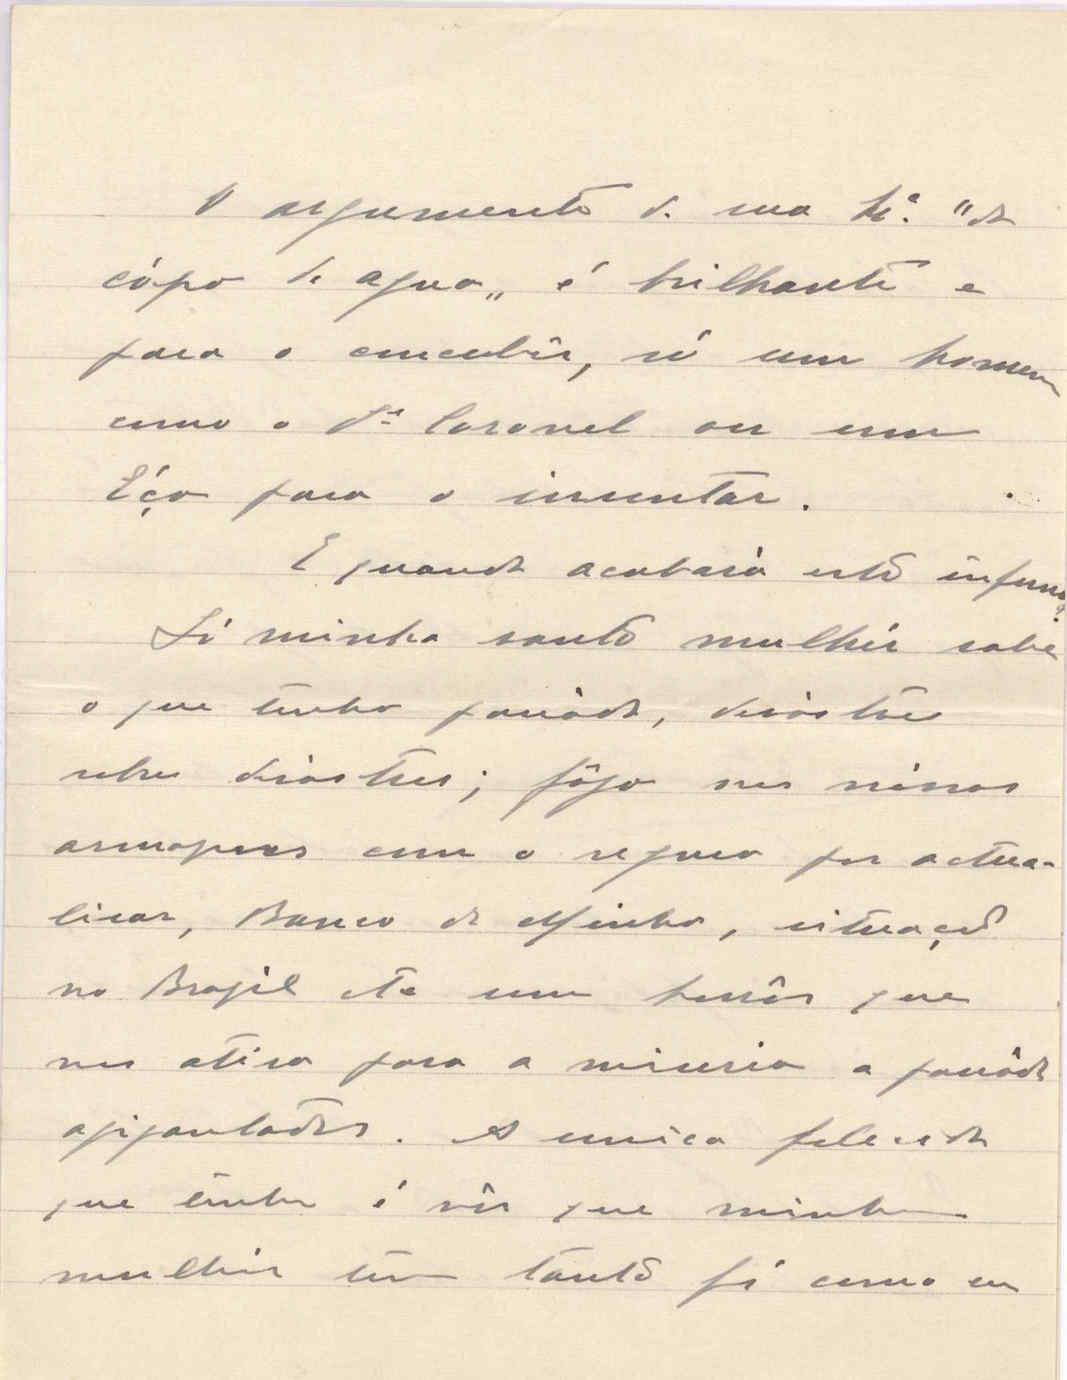 O argumento de sua Exª. "do
cópo de agua„ é brilhante e
para o conceber, só um homem
como o Dr. Coronel ou um
Eça para o inventar.
E quando acabará isto
Só minha santa mulhér sabe
o que tenho passádo, desástres
sobre desástres; fôgo nos nóssos
armazens com o seguro por actua-
lisar, Banco do Minho, situação
no Brazil etc um horrôr que
nos atira para a miseria a passôs
agigantados. A unica felicidade
que tenho é vêr que minha
mulhér tem tanta fé como eu